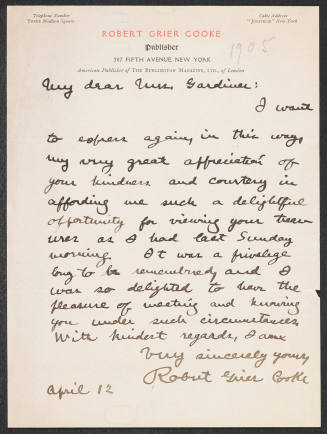 Telephone Number
Cable Address
"Jonitrum" New York
ROBERT GRIER COOKE
Publisher
307 FIFTH AVENUE NEW YORK
American Publisher of The Burlington Magazine, Ltd., of London
1905
My dear Mrs. Gardiner:
I want
to express again, in this way,
my very great appreciation of
your kindness and courtesy in
affording me such a delightful
opportunity for viewing your treas
ures as I had last Sunday
morning. It was a privilege
long to be remembered, and I
was so delighted to have the
pleasure of meeting and knowing
you under such circumstances.
With kindest regards, I am
Very sincerely yours,
Robert Grier Cooke
April 12